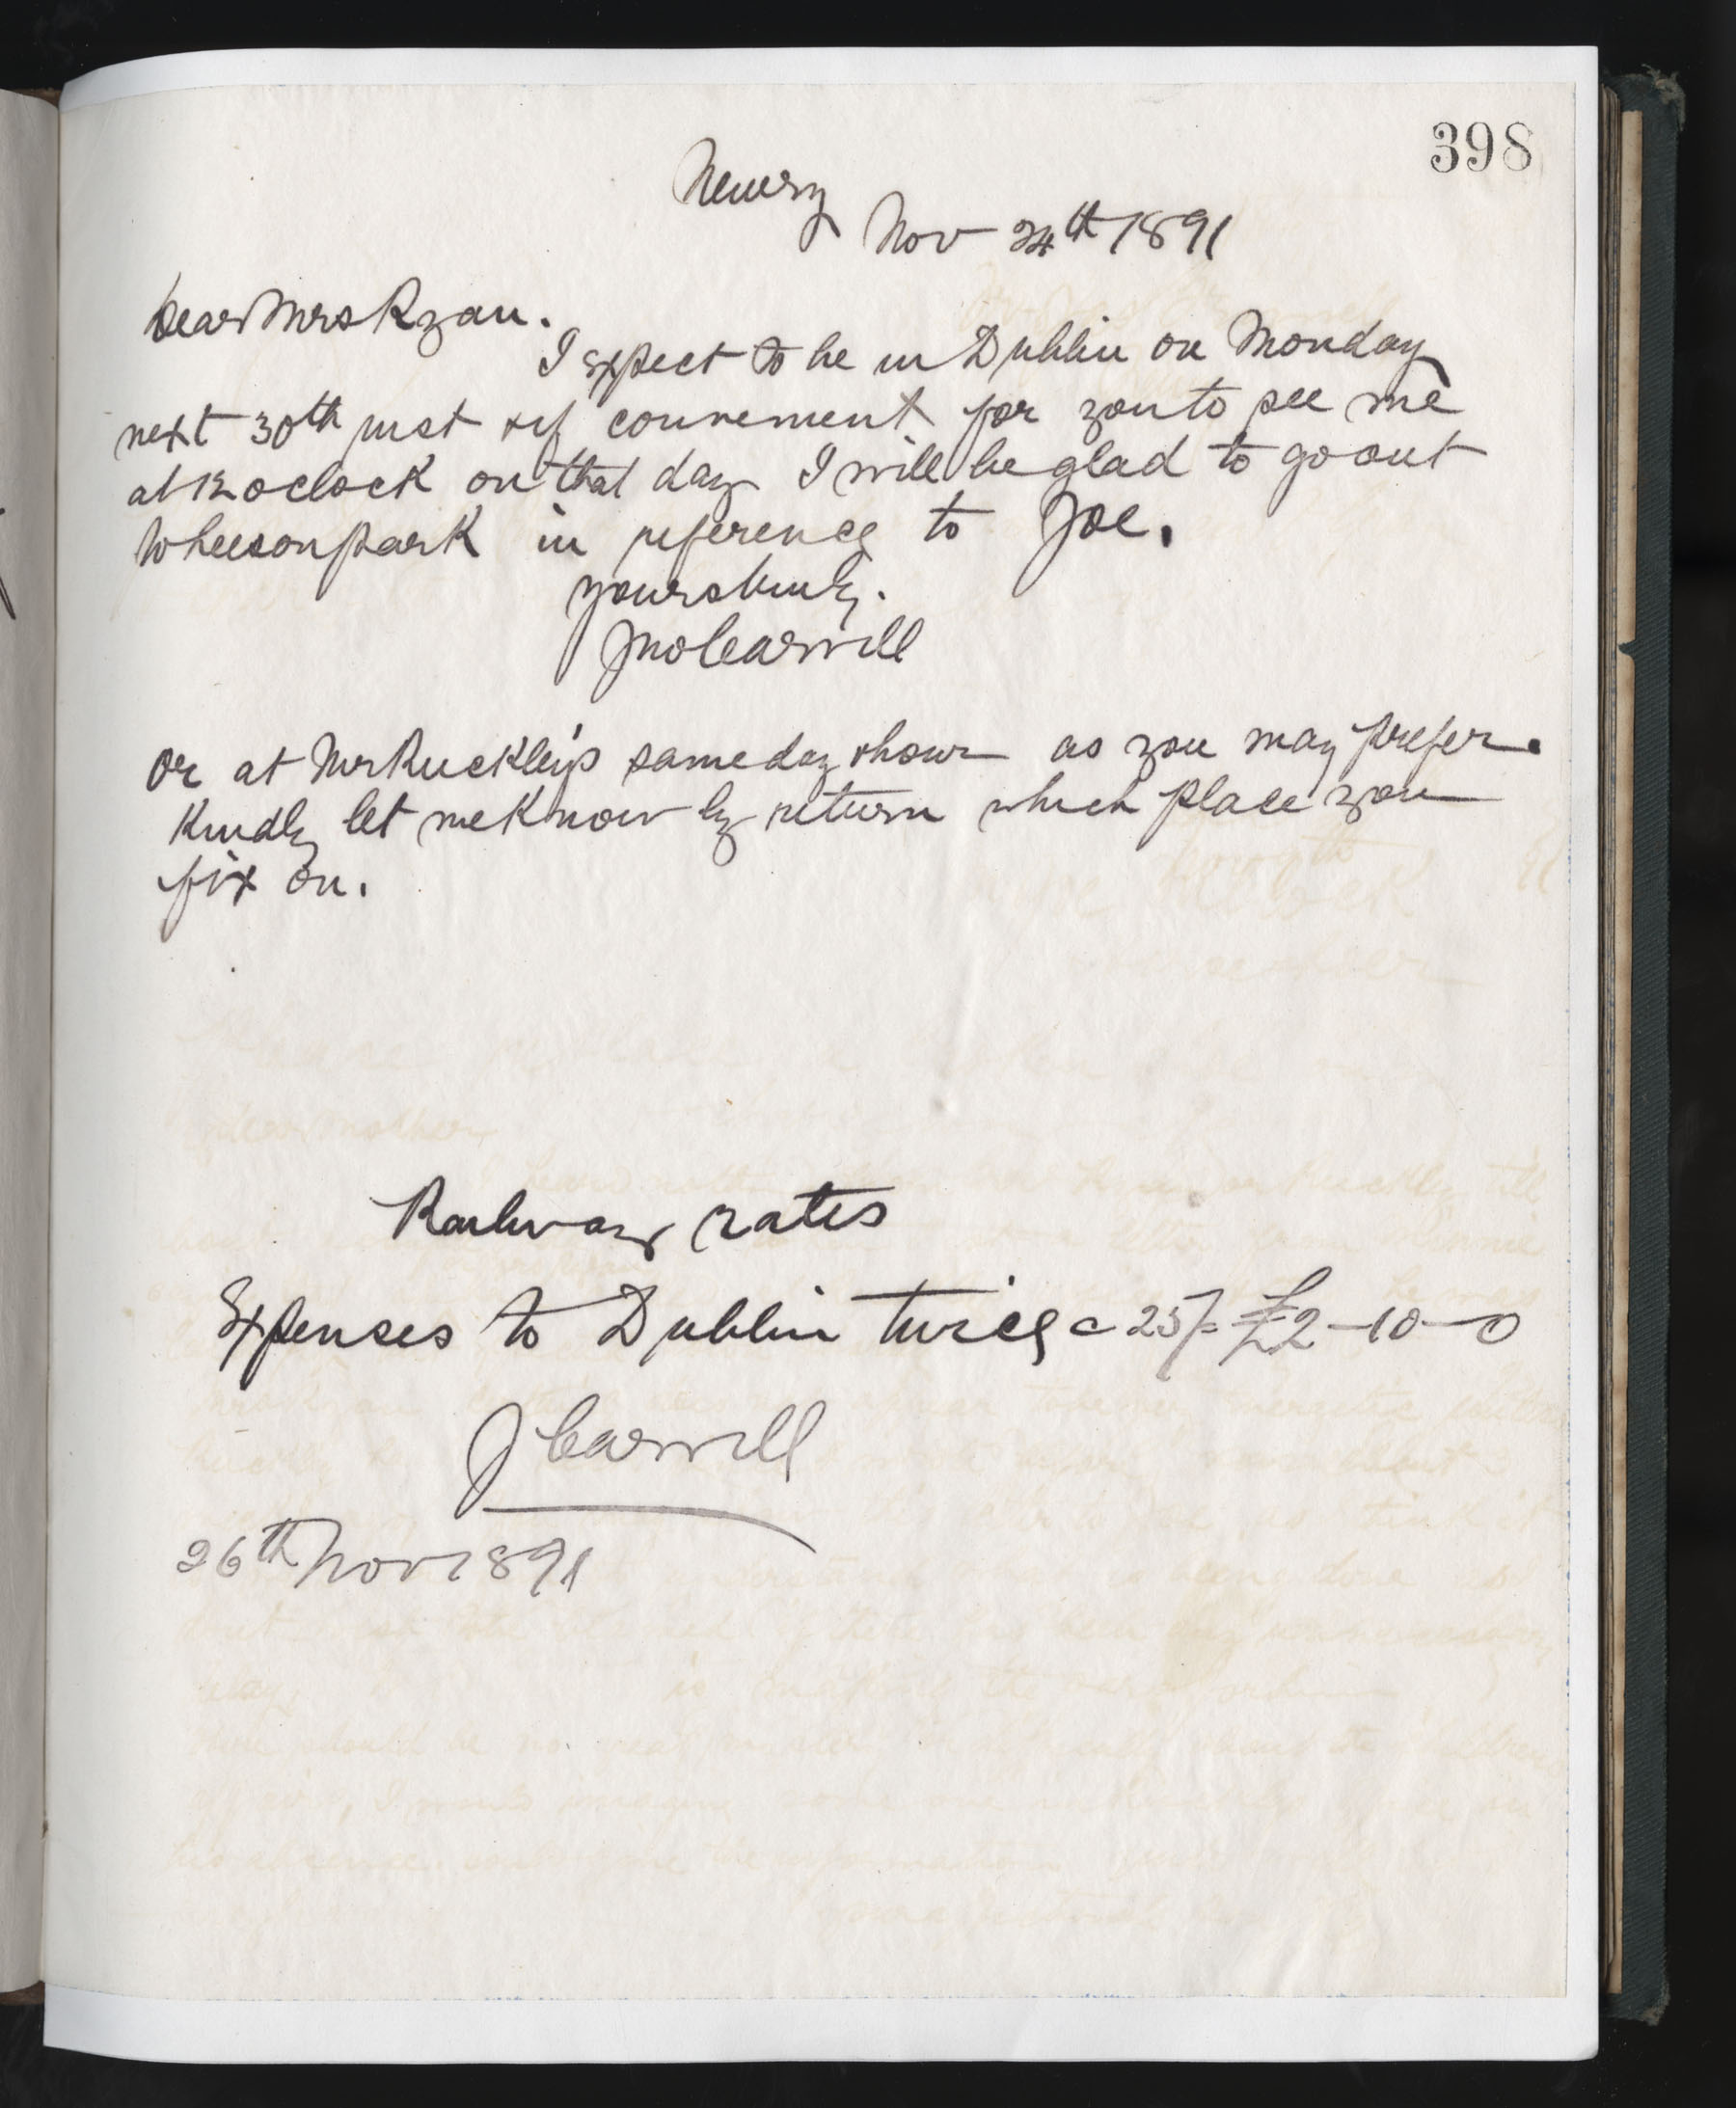 398
Newry
Nov 24th 1891
Dear Mrs Ryan.
I expect to be in Dublin on Monday
next 30th inst & if convenient for you to see me
at 12 oclock on that day I will be glad to go out
to heesonpark in reference to Joe.
yours truly.
Jno Carvill
or at Mr Ruckley's same day & hour as you may prefer.
Kindly let me Know by return which place you
fix on.
Railway rates
Expenses to Dublin twice @ 25/= £2-10-0
J Carvill
26th Nov 1891